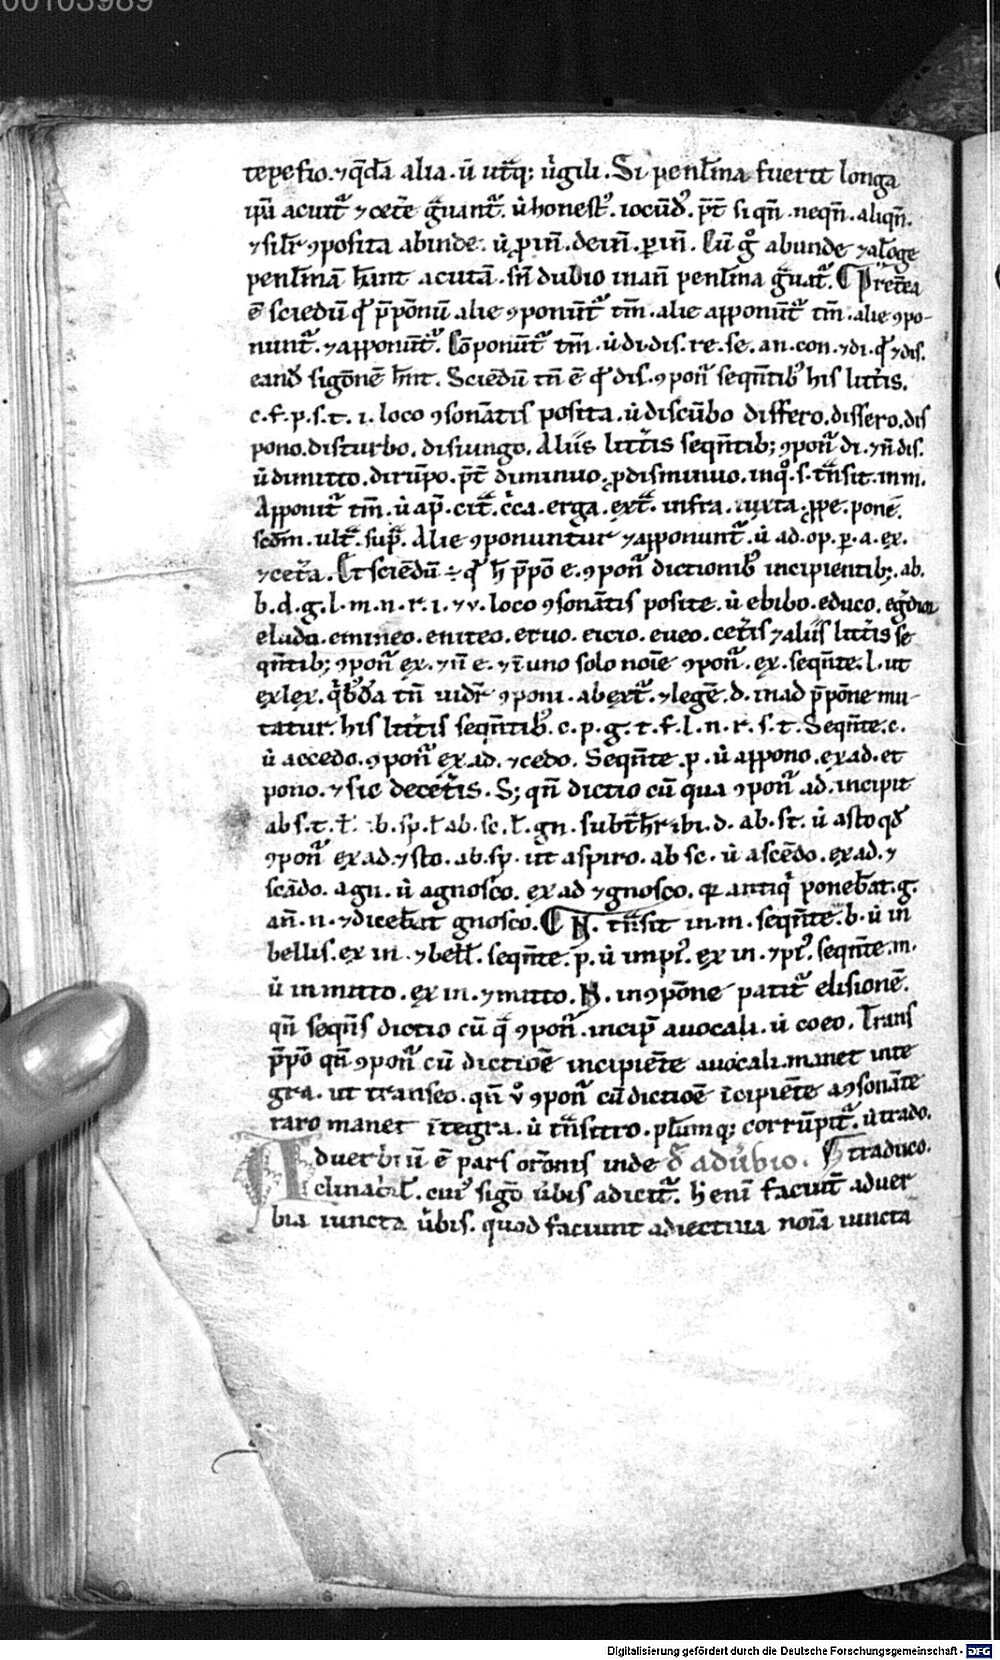 00103989
tepefio. ⁊ q̄dā alia. ū ut̄q; u̓gili. Si penl̄ima fuerit longa
ip̄a acuit᷑ ⁊ cet̄e g̃uant᷑. u̓ honest᷒. iocūd᷒. p̄t̄ si qn̄. neqn̄. aliqn̄.
⁊ sil̄r ꝯposita abinde. u̓ ꝓin̄. dein̄. ꝑin̄. Cū g̊ abunde ⁊ al̄oge
penl̄imā h̄nt acutā. sn̄ dubio in an̄ penl̄ima g̃uat᷑. ¶ Pret̄ea
ē sciedū qđ p̄pōnū alie ꝯponūt᷑ tm̄. alie apponūt᷑ tm̄. alie ꝯpo-
nunt᷑. ⁊ apponūt᷑. Cōponūt᷑ tm̄. u̓ di. dis. re. se. an. con. ⁊ di. qđ ⁊ dis.
eand̄ sigōnē h̄nt. Sciēdū tn̄ ē qđ dis. ꝯpon᷑ seqn̄tib᷒ his litt̄is.
c. f. p. s. t. i. loco ꝯsonātis posita. u̓ discūbo differo. dissero. dis
pono. disturbo. disiungo. Aliis litt̄is seqn̄tib; ꝯpon᷑ di. ⁊ n̄ dis.
u̓ dimitto. dirūpo. p̄t̄ diminuo, ꝓ disminuo. in q̊. s. t̄nsit. in m.
Apponit᷑ tm̄. u̓ ap̄. cit̄. c̓ca. erga. ext̄. infra. iuxta. ꝓpe. ponē.
scdm̄. ult̄. sup̄. Alie ꝯponuntur ⁊ apponunt᷑. u̓ ad. op. ꝑ. a. ex.
⁊ cet̄a. Et sciēdū ÷ qđ h̄ p̄pō e. ꝯpon᷑ dictionib᷒ incipientib; ab.
b. d. g. l. m. n. r. i. ⁊ v. loco ꝯsonātis posite. u̓ ebibo. educo. eg̃dior
eludo. emineo. eniteo. eruo. eicio. eueo. cet̄is ⁊ aliis litt̄is se
qn̄tib; ꝯpon᷑ ex. ⁊ n̄ e. ⁊ ī uno solo noīe ꝯpon᷑. ex. seqn̄te. l. ut
exlex. q̓b᷒dā tn̄ uidr̄ ꝯponi. ab ext᷑. ⁊ legē. d. in ad p̄pōne mu-
tatur. his litt̄is seqn̄tib᷒. c. p. g. t. f. l. n. r. s. t. Seqn̄te. c.
u̓ accedo. ꝯpon᷑ ex ad. ⁊ cedo. Seqn̄te. p. u̓ appono. ex ad. et
pono. ⁊ sic de cet̄is. S; qn̄ dictio cū qua ꝯpon᷑ ad. incipit
ab s. t. ł. ab. sp. ł ab. sc. ł. gn. subt̄hr̄ ibi. d. ab. st. u̓ asto qđ
ꝯpon᷑ ex ad. ⁊ sto. ab. sp. ut aspiro. ab sc. u̓ ascēdo. ex ad. ⁊
scādo. a gn. u̓ agnosco. ex ad ⁊ gnosco. qr antiq̓ poneb̄at. g.
an̄. n. ⁊ diceb̄at gnosco. ¶ N. t̄nsit in. m. seqn̄te. b. u̓ in
bellis. ex in. ⁊ bell̄. seqn̄te. p. u̓ imp᷒. ex in. ⁊ p᷒. seqn̄te. m.
u̓ inmitto. ex in. ⁊ mitto. N. in ꝯpōne patit᷑ elisionē.
qn̄ seqn̄s dictio cū q̄ ꝯpon᷑. incip̄ a uocali. u̓ coeo. Trans
p̄pō qn̄ ꝯpon᷑ cū dictiōe incipiēte a uocali. manet inte
gra. ut transeo. qn̄ v̊ ꝯpon᷑ cū dictiōe īcipiēte a ꝯsonāte
raro manet ītegra. u̓ t̄nsitro. plm̄q; corrūpit᷑. u̓ trado.
Aduerbiū ē pars or̄onis inde đ adu̓bio. traduco.
clinabil̄. cui᷒ sigō u̓bis adicit᷑. h̄ enī faciūt aduer
bia iuncta u̓bis. quod faciunt adiectiua noīa iuncta
Digitalisierung gefördert durch die Deutsche Forschungsgemeinschaft - DFG